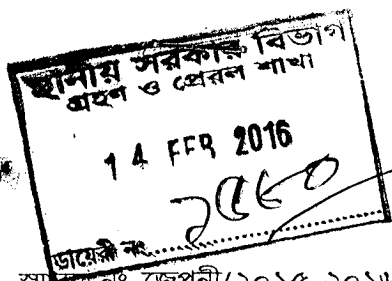 স্থানীয় সরকার বিভাগ
গ্রহণ ও প্রেরণ শাখা
14 FEB 2016
ডায়েরী নং
জেপনী/২০১৫-২০১৬